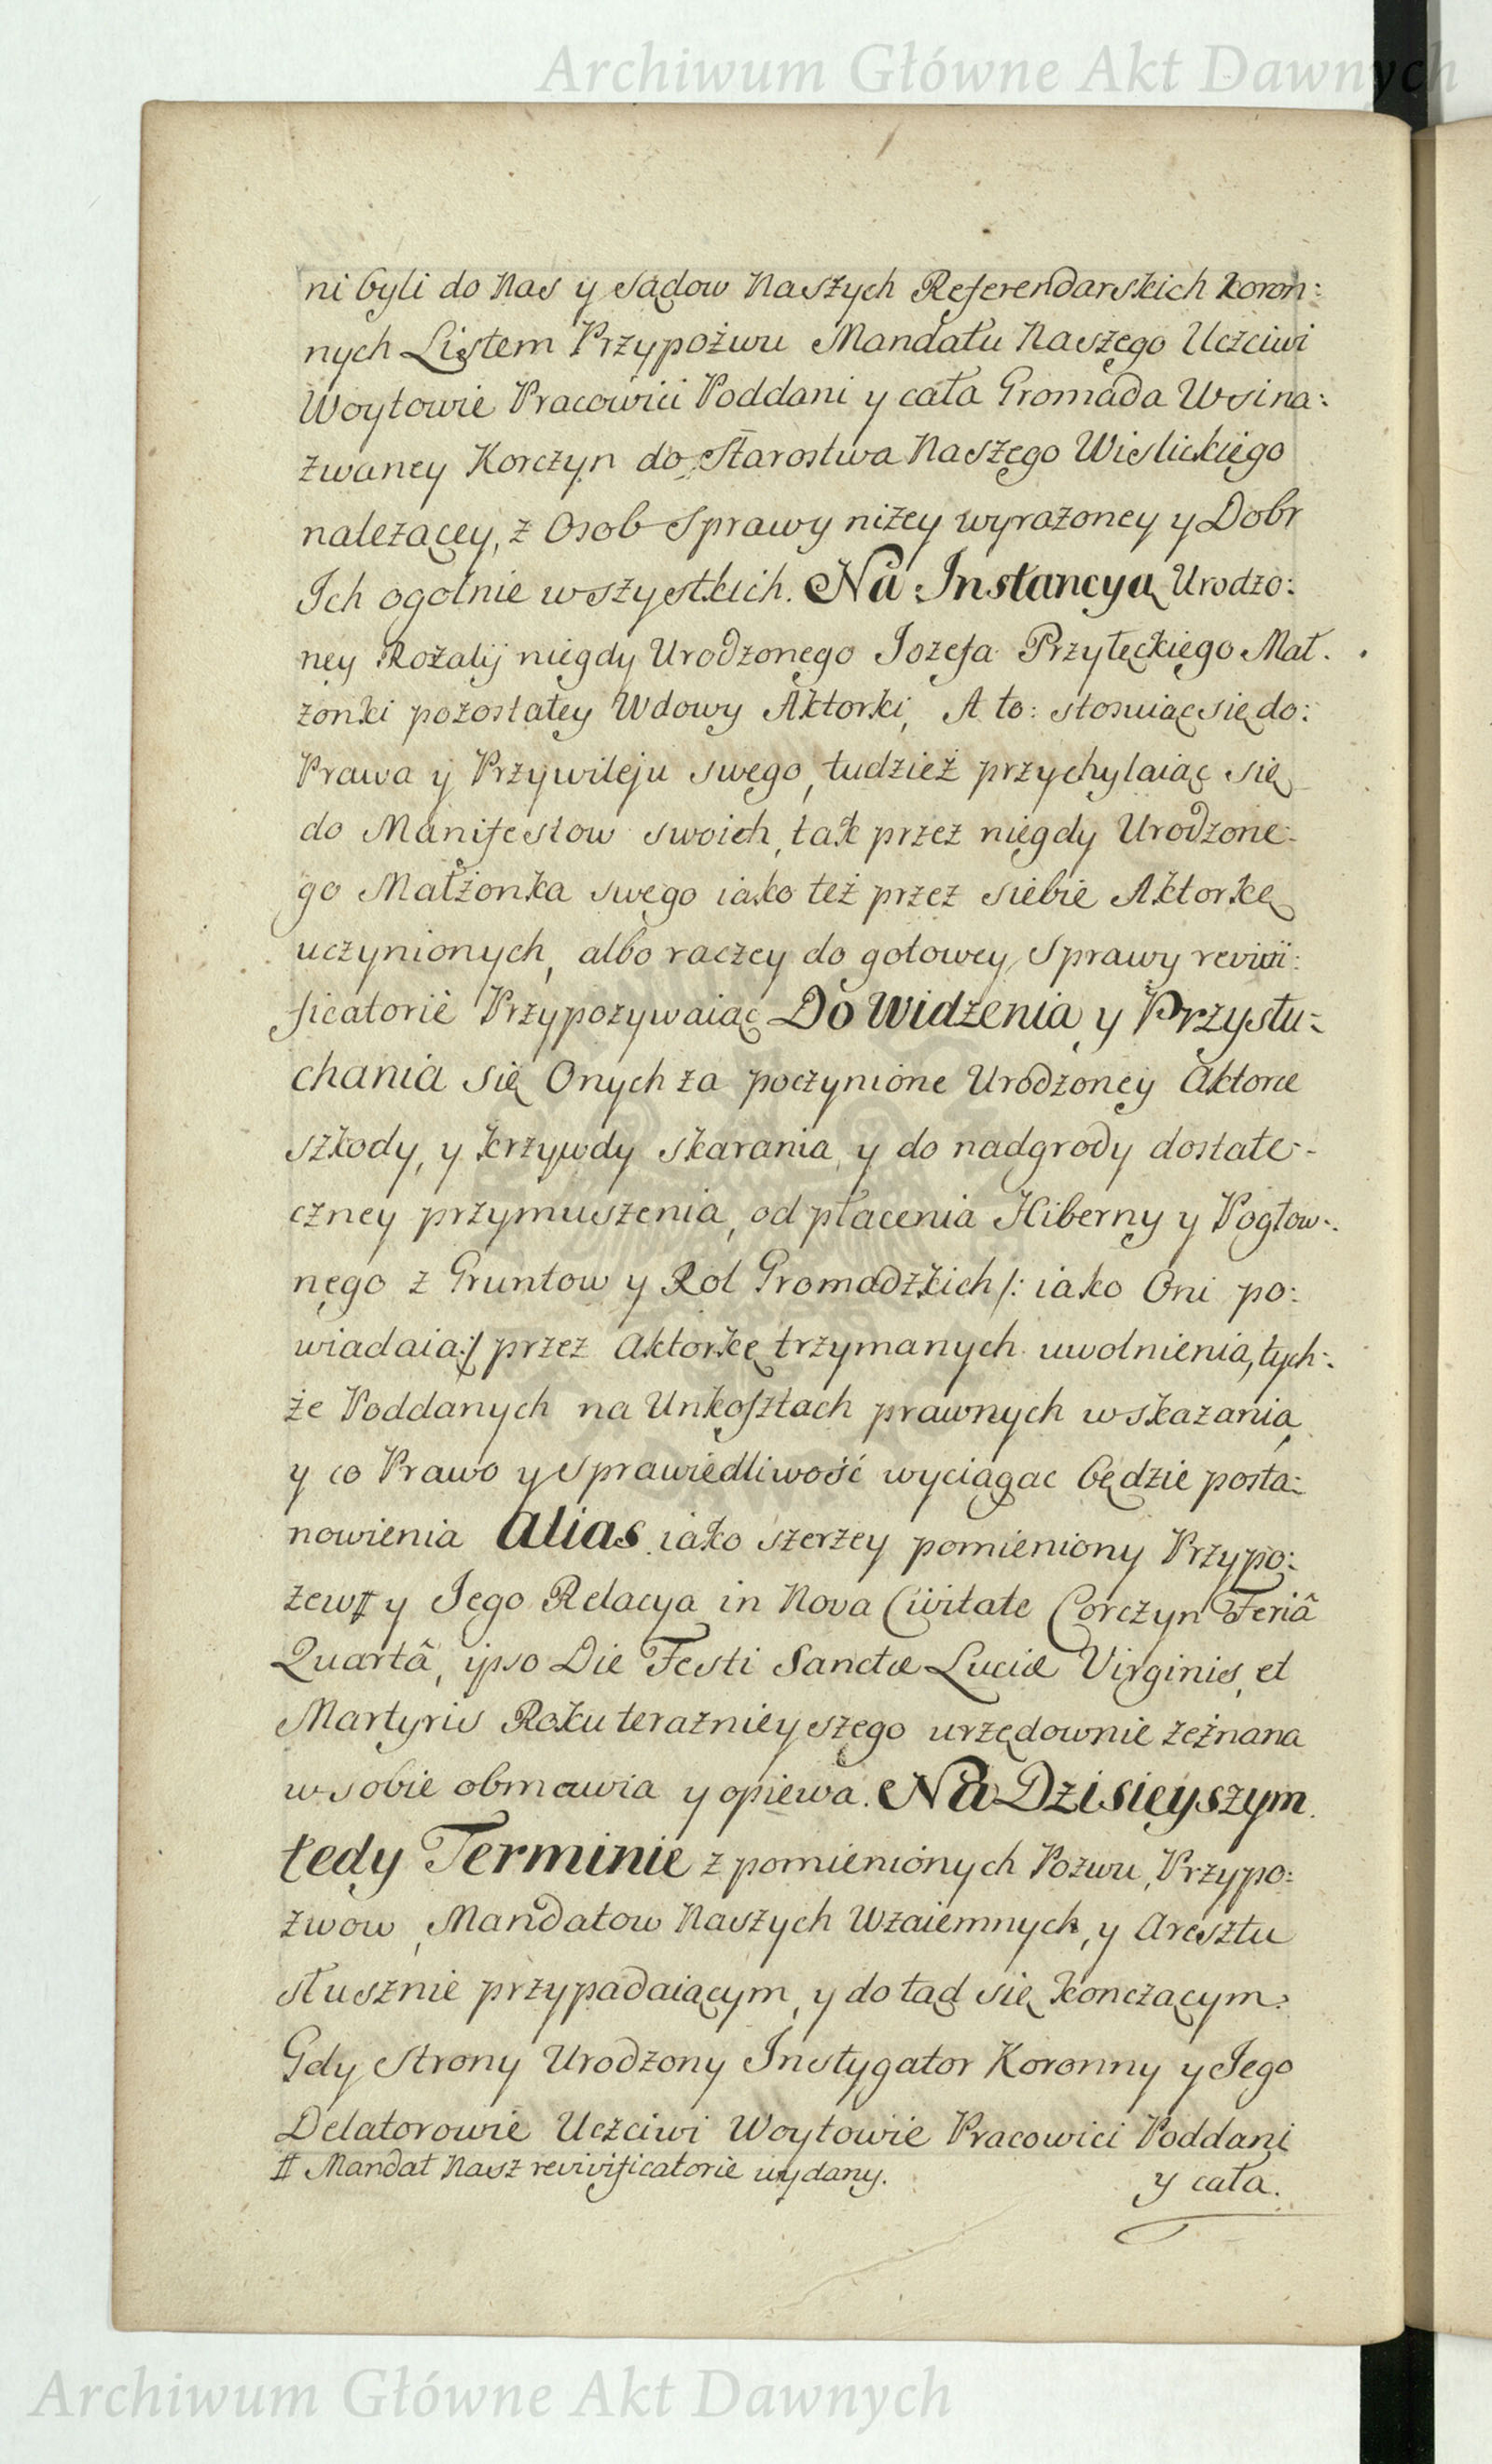 Archiwum Główne Akt Dawnych
ni byli do Nas y Sądow Naszych Referendarskich Koron:
nych Listem Przypozwu Mandatu Naszego Uczciwi
Woytowie Pracowici Poddani y cała Gromada Wsi na:
zwaney Korczyn do Starostwa Naszego Wislickiego
należącey, z Osob Sprawy niżey wyrażoney y Dobr
Ich ogolnie wszystkich. Na Instancyą Urodzo:
ney Rozalij niegdy Urodzonego Jozefa Przyłęckiego Mał.
żonki pozostałey Wdowy Aktorki, A to: stosuiąc się do:
Prawa y Przywileju swego, tudzież przychylaiąc się
do Manifestow swoich, tak przez niegdy Urodzone-
go Małżonka swego iako też przez siebie Aktorkę
uczynionych, albo raczey do gotowey Sprawy revivi:
ficatorie Przypozywaiąc Do Widzenia y Przysłu-
chania się Onych za poczynione Urodzoney Aktorce
szkody, y krzywdy skarania, y do nadgrody dostate-
czney przymuszenia, od płacenia Hiberny y Pogłow-
nego z Gruntow y Rol Gromadzkich /: iako Oni po:
wiadaią :/ przez Aktorkę trzymanych uwolnienia, tych-
że Poddanych na Unkosztach prawnych wskazania,
y co Prawo y Sprawiedliwość wyciągac będzie posta-
nowienia Alias iako szerzey pomieniony Przypo:
zew # y Jego Relacya in Nova Civitate Corczyn Feriâ
Quartâ, ipso Die Festi Sanctæ Luciæ Virginis, et
Martyris Roku terazniey szego urzędownie zeznana
w sobie obmawia y opiewa. Na Dzisieyszym
tedy Terminie z pomienionych Pozwu, Przypo:
zwow, Mandatow Naszych Wzaiemnych, y Aresztu
słusznie przypadaiącym, y do tąd się kończącym:
Gdy Strony Urodzony Instygator Koronny y Jego
Delatorowie Uczciwi Woytowie Pracowici Poddani
# Mandat Nasz revivificatorie wydany.
y cała.
Archiwum Główne Akt Dawnych